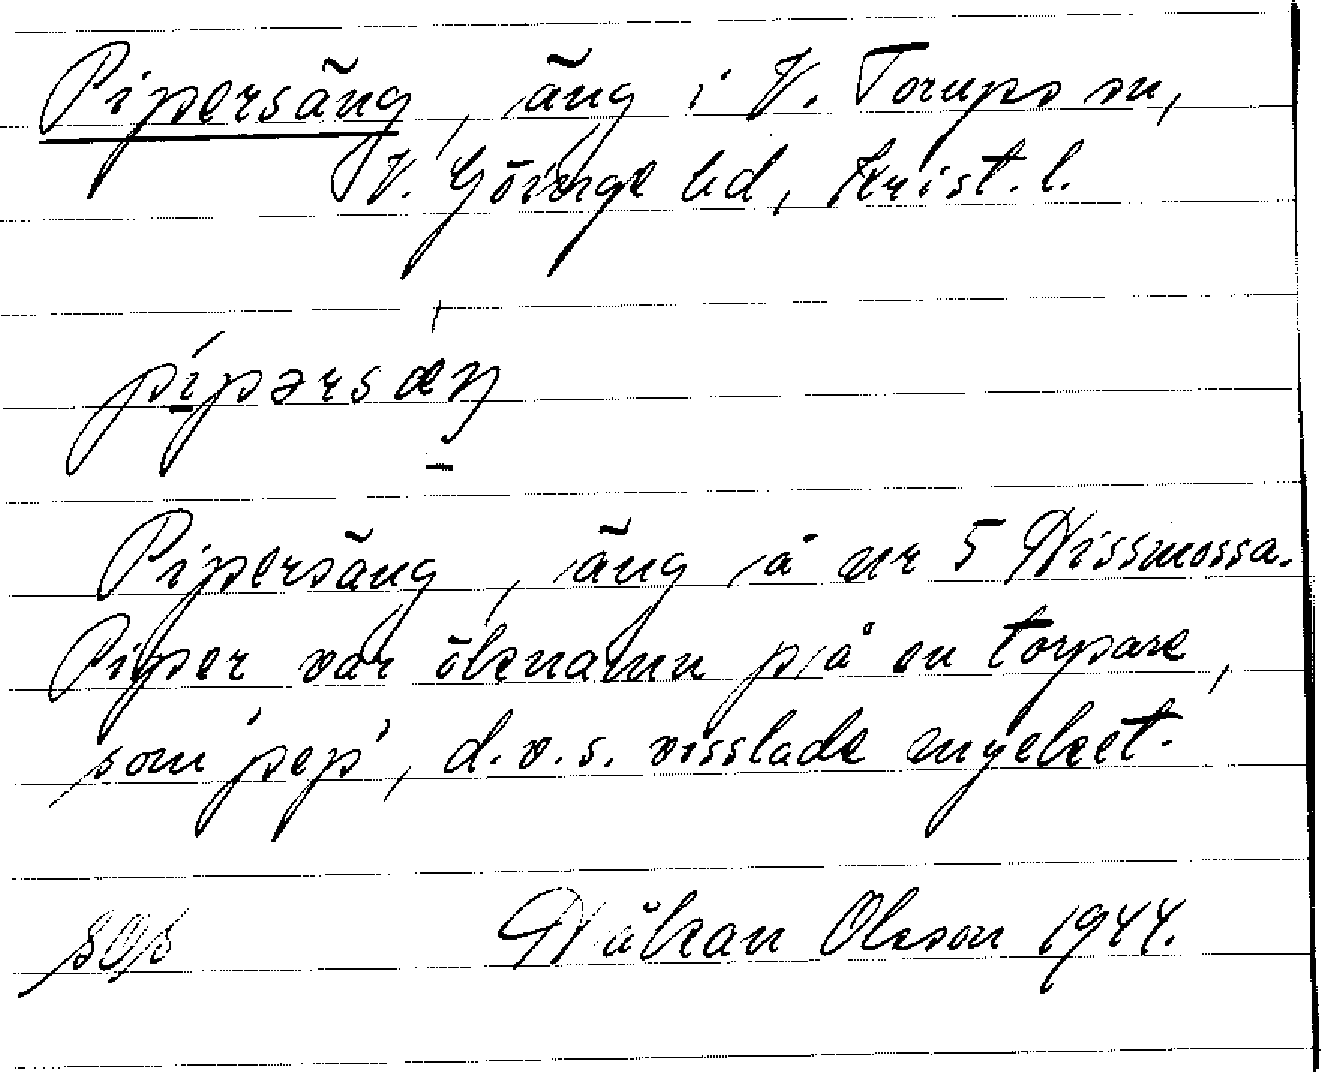 Pipersäng, äng i V. Torups sn,
V. Göinge hd, Krist. l.
pípərsæŋ
Pipersäng, äng å nr 5 Hissmossa.
Piper var öknamn på en torpare,
som 'pep', d.v.s. visslade mycket.
Håkan Olsson 1944.